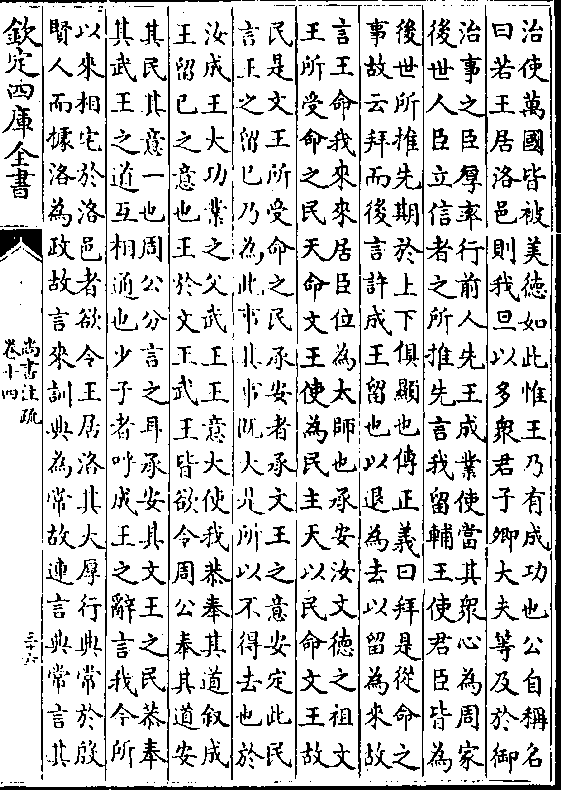 治使萬國皆被美德如此惟王乃有成功也公自稱名
曰若王居洛邑則我旦以多衆君子卿大夫等及於御
治事之臣厚率行前人先王成業使當其衆心為周家
後世人臣立信者之所推先言我留輔王使君臣皆為
後世所推先期於上下俱顯也傳正義曰拜是從命之
事故云拜而後言許成王留也以退為去以留為來故
言王命我來來居臣位為太師也承安汝文德之祖文
王所受命之民天命文王使為民主天以民命文王故
民是文王所受命之民承安者承文王之意安定此民
言王之留已乃為此事其事既大是所以不得去也於
汝成王大功業之父武王王意大使我恭奉其道叙成
王留已之意也王於文王武王皆欲令周公奉其道安
其民其意一也周公分言之耳承安其文王之民恭奉
其武王之道互相通也少子者呼成王之辭言我今所
以來相宅於洛邑者欲令王居洛其大厚行典常於殷
賢人而據洛為政故言來訓典為常故連言典常言其
欽定四庫全書
尚書注疏
卷十四
三十六